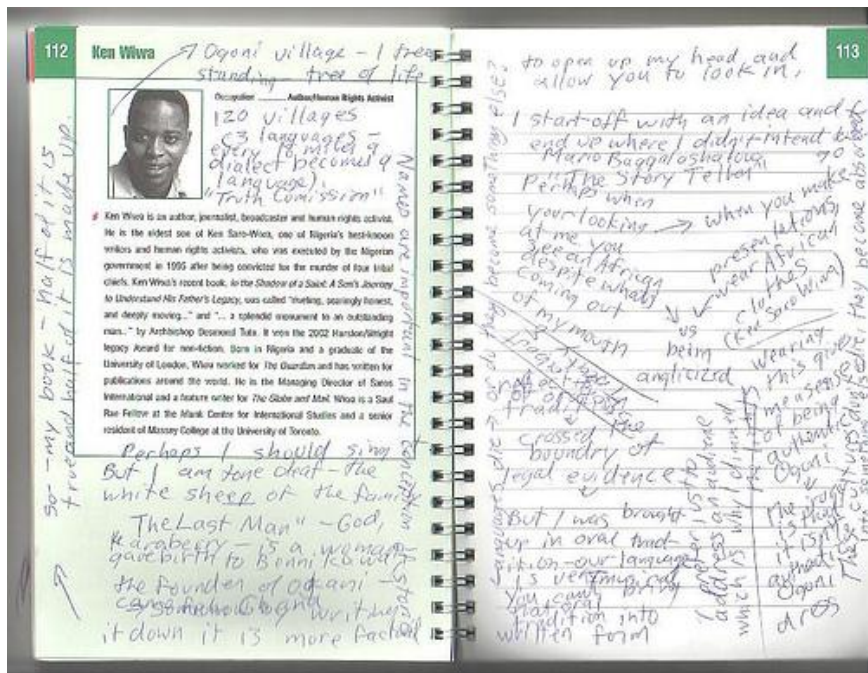 112 Ken Wiwa
Ogoni village - 1 tree
standing - tree of life
Occupation Author/Human Rights Activist
120 villages
(3 languages -
every 10 miles a
dialect becomes a
language).
"Truth Comission"
Ken Wiwa is an author, journalist, broadcaster and human rights activist.
He is the eldest son of Ken Saro-Wiwa, one of Nigeria's best-known
writers and human rights activists, who was executed by the Nigerian
government in 1995 after being convicted for the murder of four tribal
chiefs. Ken Wiwa's recent book, In the Shadow of a Saint: A Son's Journey
to Understand His Father's Legacy, was called "riveting, searingly honest,
and deeply moving..." and "... a splendid monument to an outstanding
man.." by Archbishop Desmond Tutu. It won the 2002 Hurston/Wright
legacy Award for non-fiction. Born in Nigeria and a graduate of the
University of London, Wiwa worked for The Guardian and has written for
publications around the world. He is the Managing Director of Saros
International and a feature writer for The Globe and Mail. Wiwa is a Saul
Rae Fellow at the Munk Centre for International Studies and a senior
resident of Massey College at the University of Toronto.
Perhaps I should sing
But I am tone deaf - the
white sheep of the family
The Last Man" - God,
is a woman
gave birth to
the founder of Ogoni -
writing
it down it is more factual
So - my book - half of it is
true and half of it is made up.
Names are important in the
113
to open up my head and
allow you to look in,
I start off with an idea and
end up where I didn't intend to
go
"The Story Teller"
Perhaps when
your looking
at me you
see an African
despite whats
coming out
of my mouth
when you make
presentations,
wear African
clothes
(Ken Saro Wiwa)
vs
being
anglicized
crossed the
boundry of
legal evidence
But I was brought
up in oral trad-
ition - our language
is very
You cant bring
oral
tradition into
written form
I prefer just to
address an audience
which is why I
Wearing
this gives
me a sense
of being
authentic
Ogoni
is that
it isn't
authentic
Ogoni
dress
Languages die, or do they become something else?